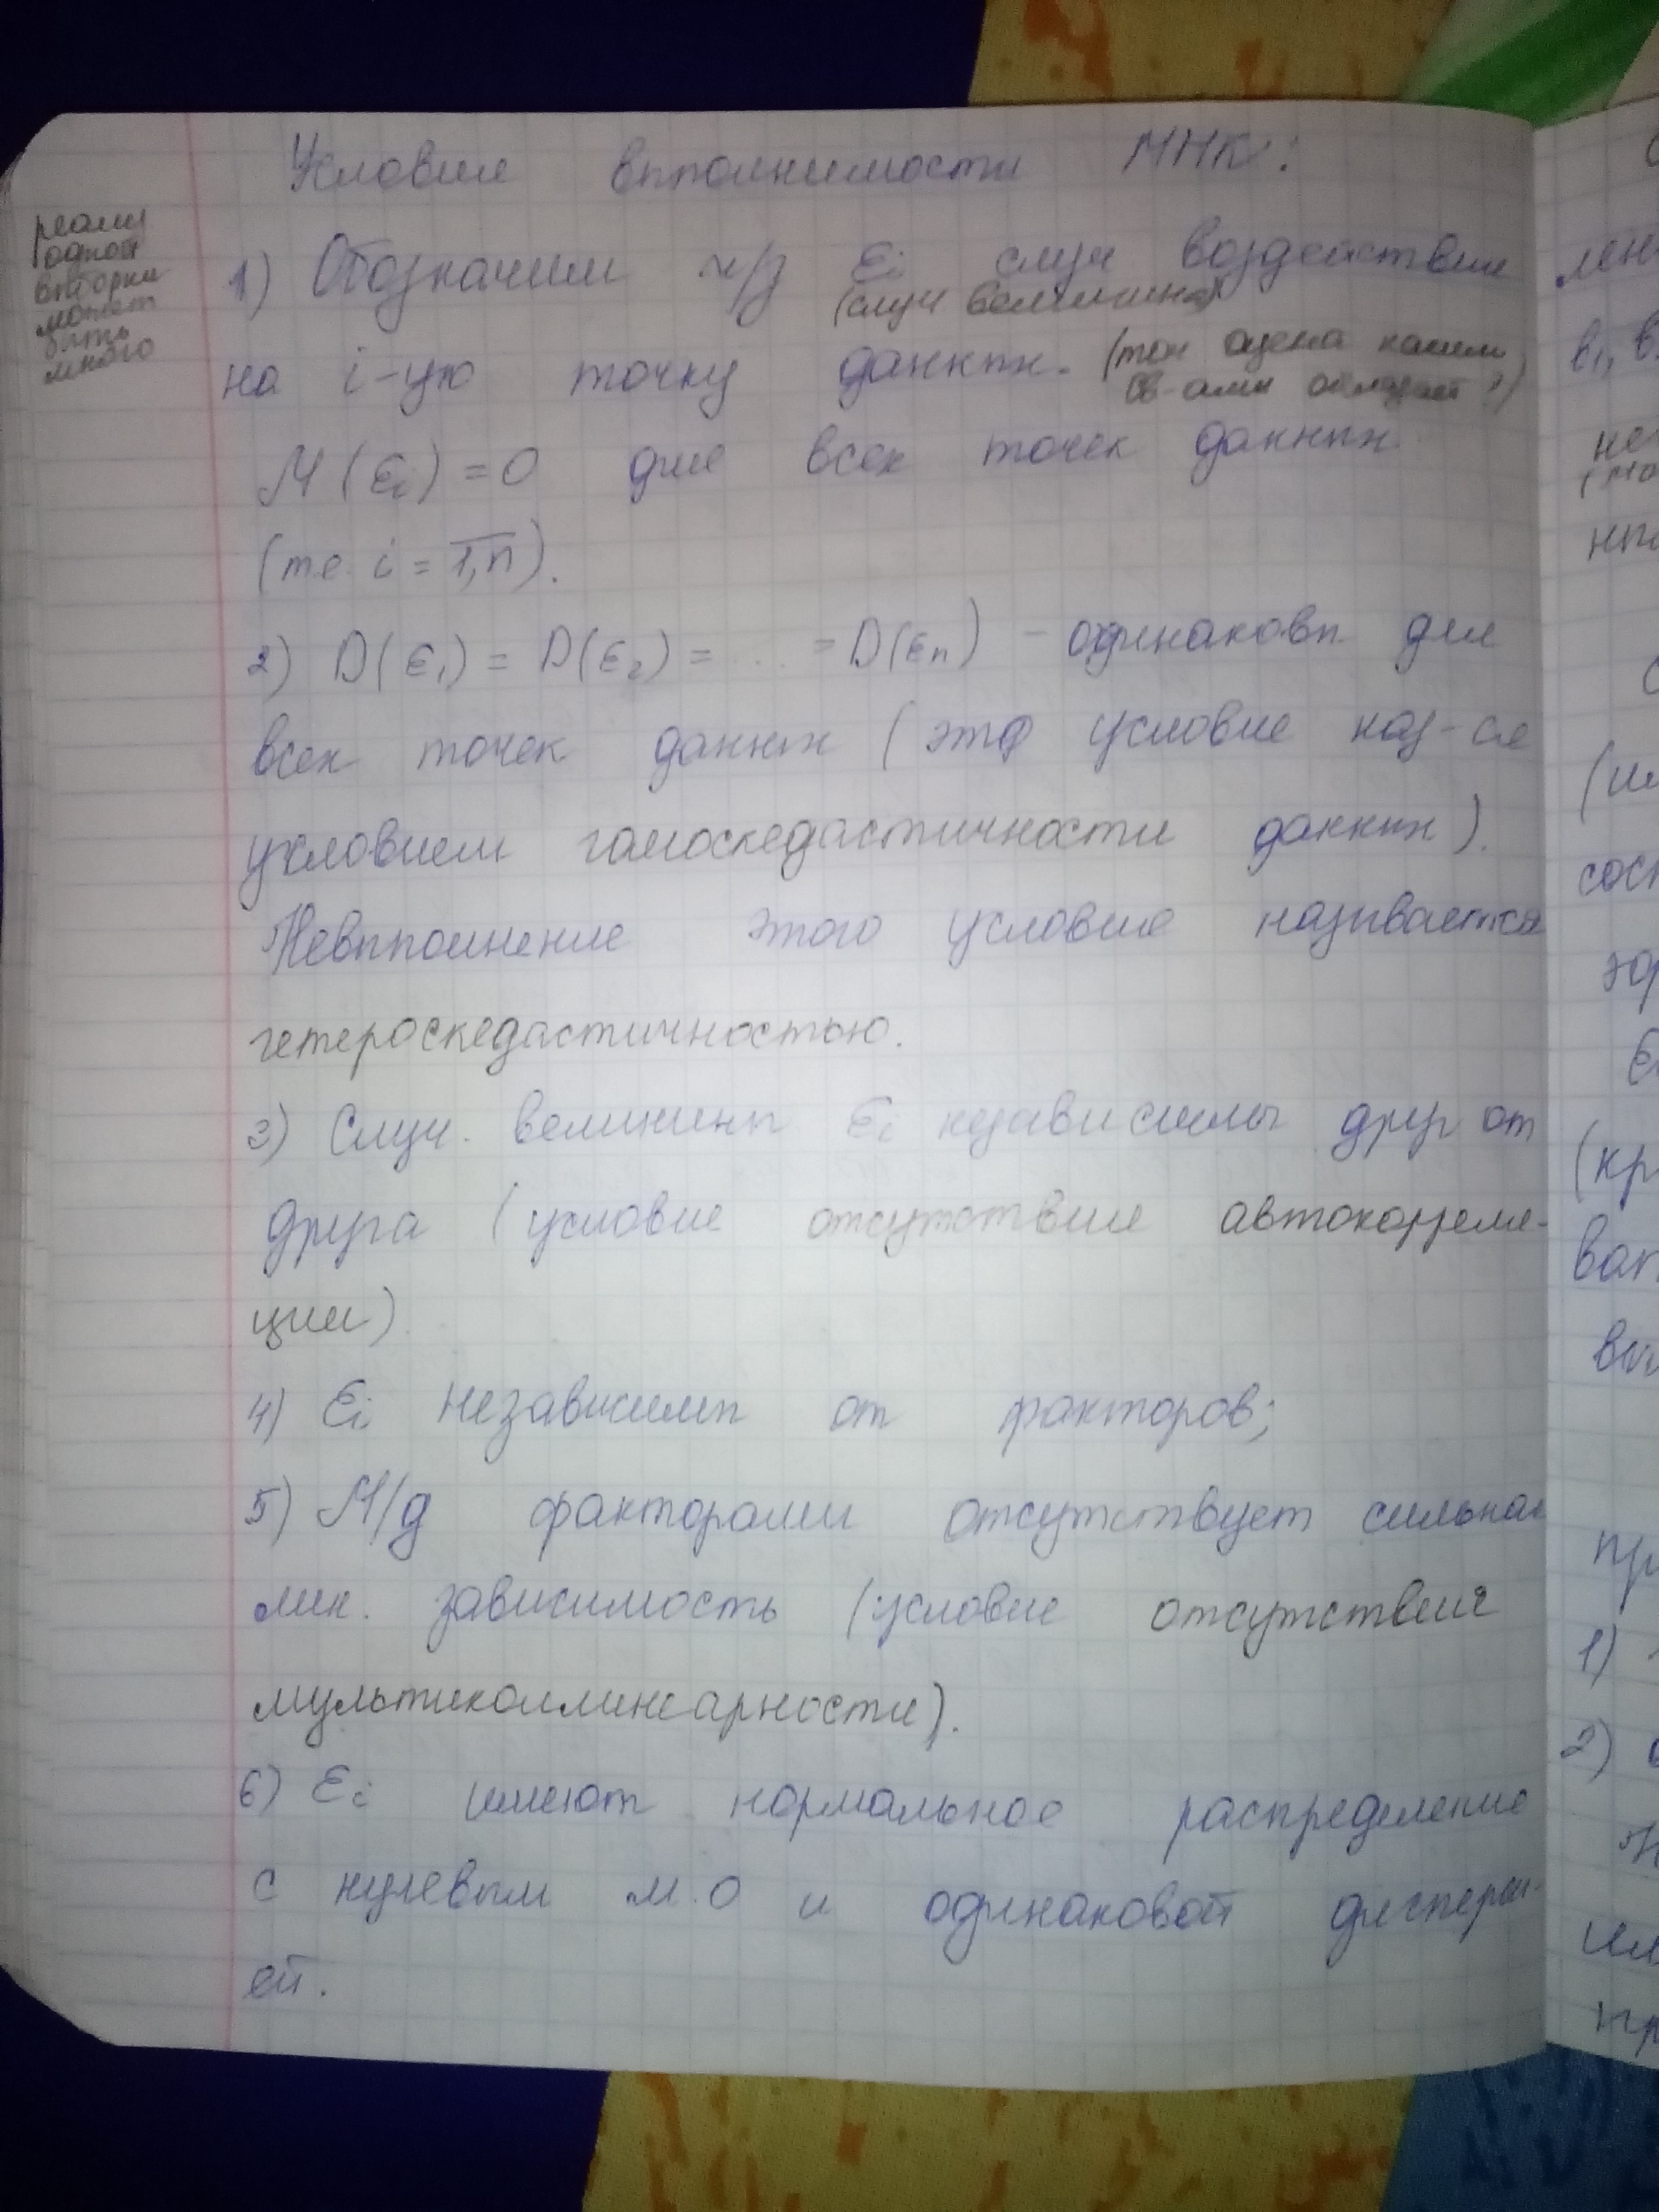 Условия выполнимости МНК:
реали
одной
выборки
может
быть
много
1) Обозначим ч/з εi случ воздействие
(случ величина)
на i-ую точку данных. (точ оцена каким
св-ами обладает?)
M(εi) = 0 для всех точек данных
(т.е. i = 1,n).
2) D(ε1) = D(ε2) = ... = D(εn) - одинаковы для
всех точек данных (это условие наз-ся
условием гомоскедастичности данных).
Невыполнение этого условия называется
гетероскедастичностью.
3) Случ. величины εi независимы друг от
друга (условие отсутствие автокорреля-
ции)
4) εi независимы от факторов;
5) М/д факторами отсутствует сильная
лин. зависимость (условие отсутствия
мультиколлинеарности).
6) εi имеют нормальное распределение
с нулевым м.о и одинаковой дисперси-
ей.
лен
не
нпо
(кр
1)
2)